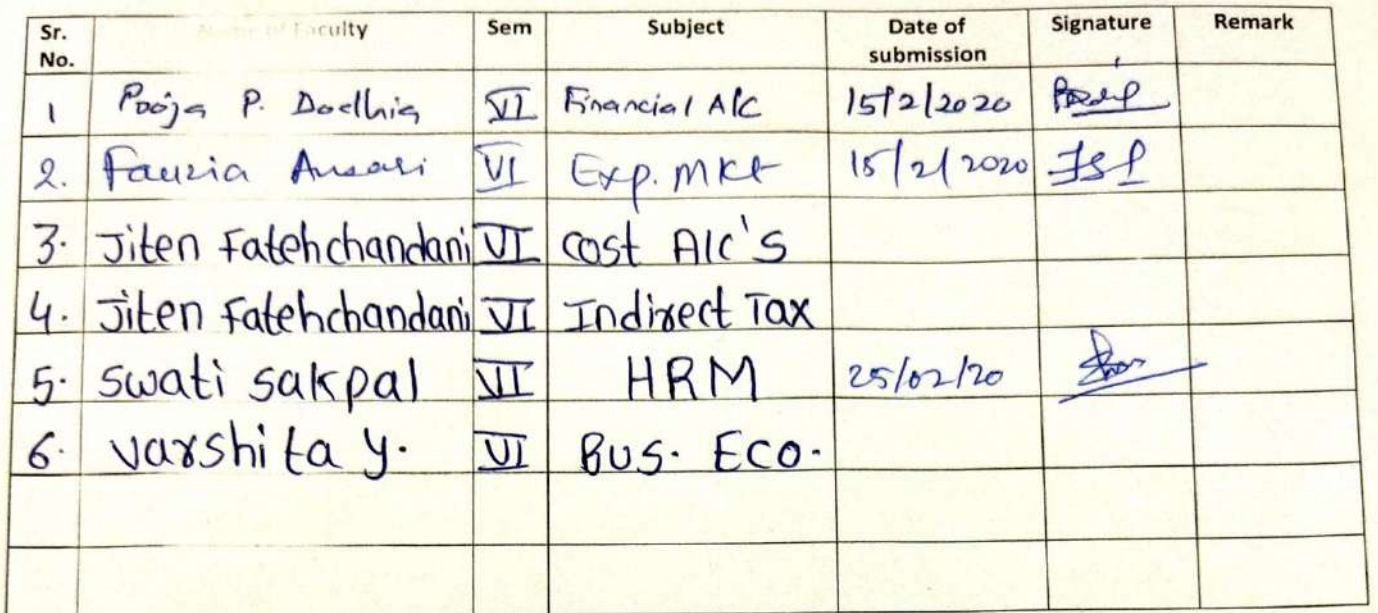 Sr. No. Name of Faculty Sem Subject Date of submission Signature Remark
1 Pooja P. Dodhia VI Financial A/C 15/2/2020
2. Fauzia Ansari VI Exp. Mkt 15/2/2020
3. Jiten Fatehchandani VI cost A/C's
4. Jiten Fatehchandani VI Indirect Tax
5. Swati sakpal VI HRM 25/02/20
6. Varshita y. VI BUS. ECO.